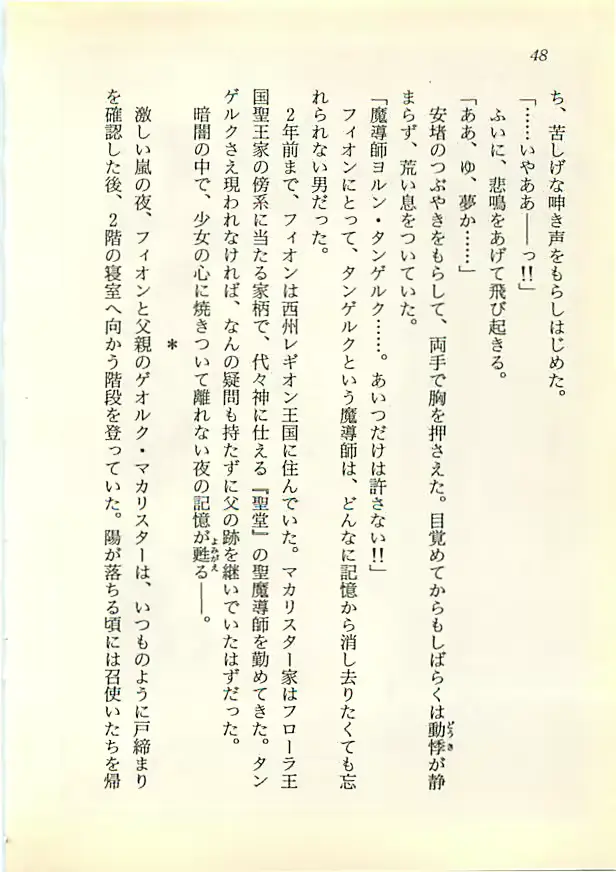 48
ち、苦しげな呻き声をもらしはじめた。
「……いやああ――っ!!」
ふいに、悲鳴をあげて飛び起きる。
「ああ、ゆ、夢か……」
安堵のつぶやきをもらして、両手で胸を押さえた。目覚めてからもしばらくは動悸が静
どうき
まらず、荒い息をついていた。
「魔導師ヨルン・タンゲルク……。あいつだけは許さない!!」
フィオンにとって、タンゲルクという魔導師は、どんなに記憶から消し去りたくても忘
れられない男だった。
2年前まで、フィオンは西州レギオン王国に住んでいた。マカリスター家はフローラ王
国聖王家の傍系に当たる家柄で、代々神に仕える『聖堂』の聖魔導師を勤めてきた。タン
ゲルクさえ現われなければ、なんの疑問も持たずに父の跡を継いでいたはずだった。
暗闇の中で、少女の心に焼きついて離れない夜の記憶が甦る――。
よみがえ
*
激しい嵐の夜、フィオンと父親のゲオルク・マカリスターは、いつものように戸締まり
を確認した後、2階の寝室へ向かう階段を登っていた。陽が落ちる頃には召使いたちを帰